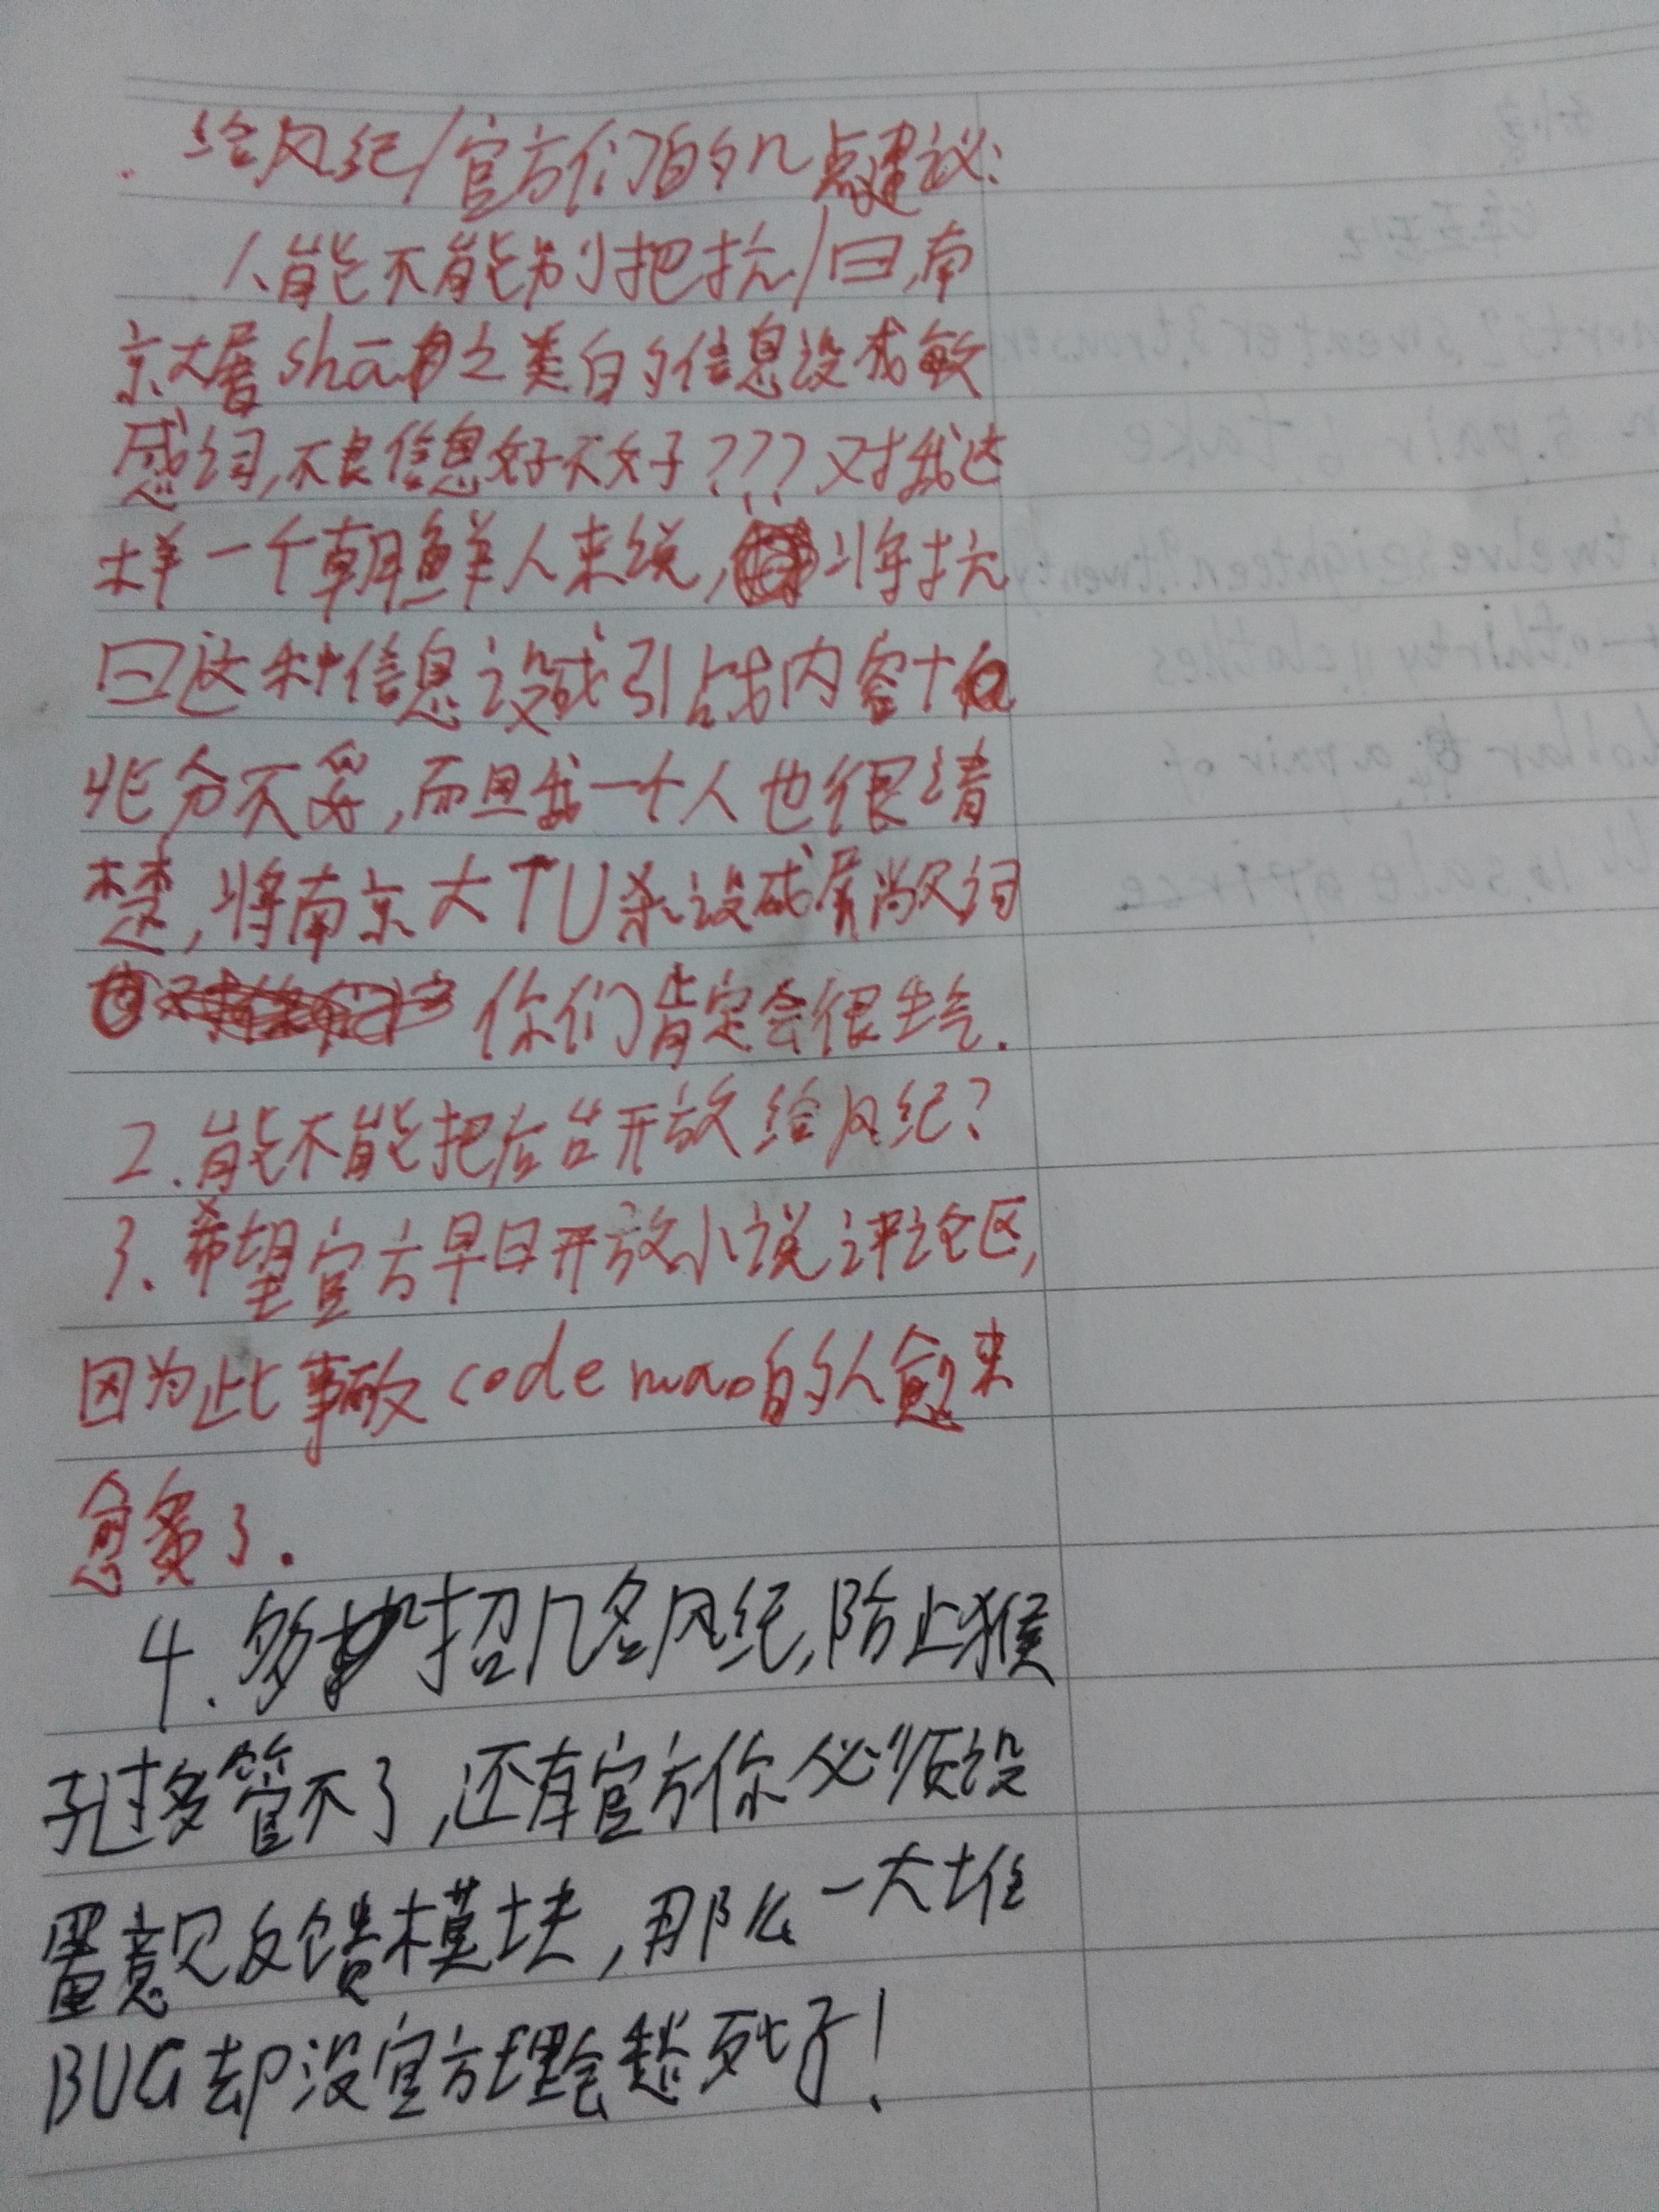 给风纪/官方们的几点建议:
1、能不能别把抗/日,南
京大屠sha之类的信息设成敏
感词,不良信息好不好???对我这
样一个朝鲜人来说,将抗
日这种信息设成引战内容十
分不妥,而且我一个人也很清
楚,将南京大TU杀设成屏蔽词
你们肯定会很生气.
2.能不能把后台开放给风纪?
3.希望官方早日开放小说评论区,
因为此事破codemao的人愈来
愈多了.
4.多招几名风纪,防止猴
子过多管不了,还有官方你必须设
置意见反馈模块,那么一大堆
BUG却没官方理会愁死了!